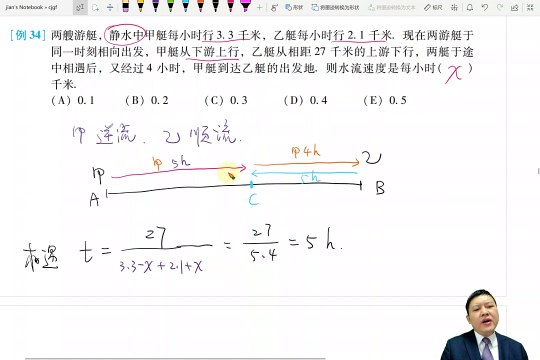 jian's Notebook » cjgf
[例 34] 两艘游艇，静水中甲艇每小时行 3.3 千米，乙艇每小时行 2.1 千米. 现在两游艇于
同一时刻相向出发，甲艇从下游上行，乙艇从相距 27 千米的上游下行，两艇于途
中相遇后，又经过 4 小时，甲艇到达乙艇的出发地. 则水流速度是每小时( x )
千米.
(A) 0.1 (B) 0.2 (C) 0.3 (D) 0.4 (E) 0.5
甲 逆流. 乙 顺流.
甲 5h 甲4h 乙
甲 5h
A C B
相遇 t = 27 / 3.3-x+2.1+x = 27 / 5.4 = 5 h.